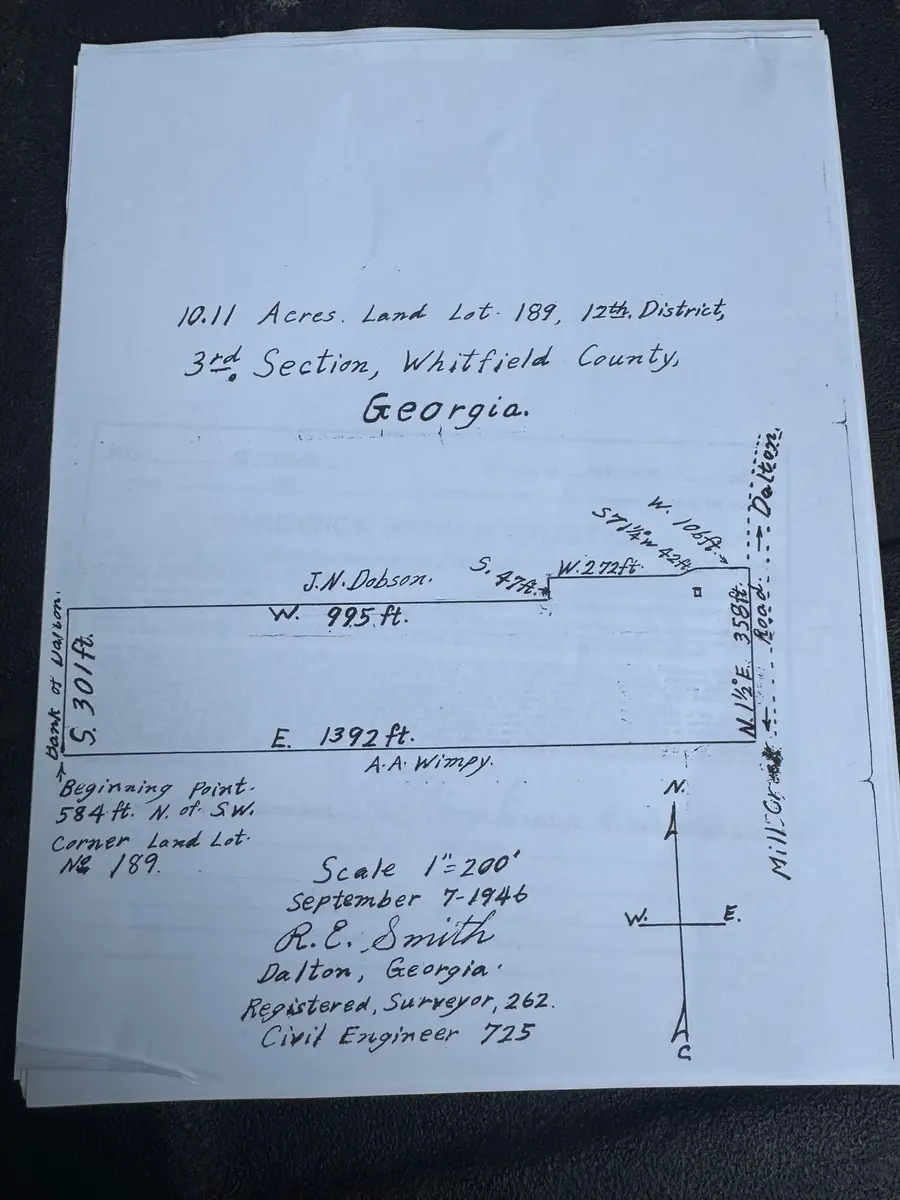 10.11 Acres. Land Lot. 189, 12th. District,
3rd. Section, Whitfield County,
Georgia.
→ Dalton.
W. 106ft.
S 71¼° W 42ft.
W. 272ft.
S. 47ft.
J.N. Dobson.
W. 995 ft.
Bank of Dalton.
S. 301 ft.
N. 1½° E. 358 ft.
Road
E. 1392 ft.
A.A. Wimpy.
Mill Creek
Beginning Point.
584 ft. N. of S.W.
Corner Land Lot.
No 189.
N.
W. E.
S
Scale 1"=200'
September 7-1946
R.E. Smith
Dalton, Georgia.
Registered, Surveyor, 262.
Civil Engineer 725